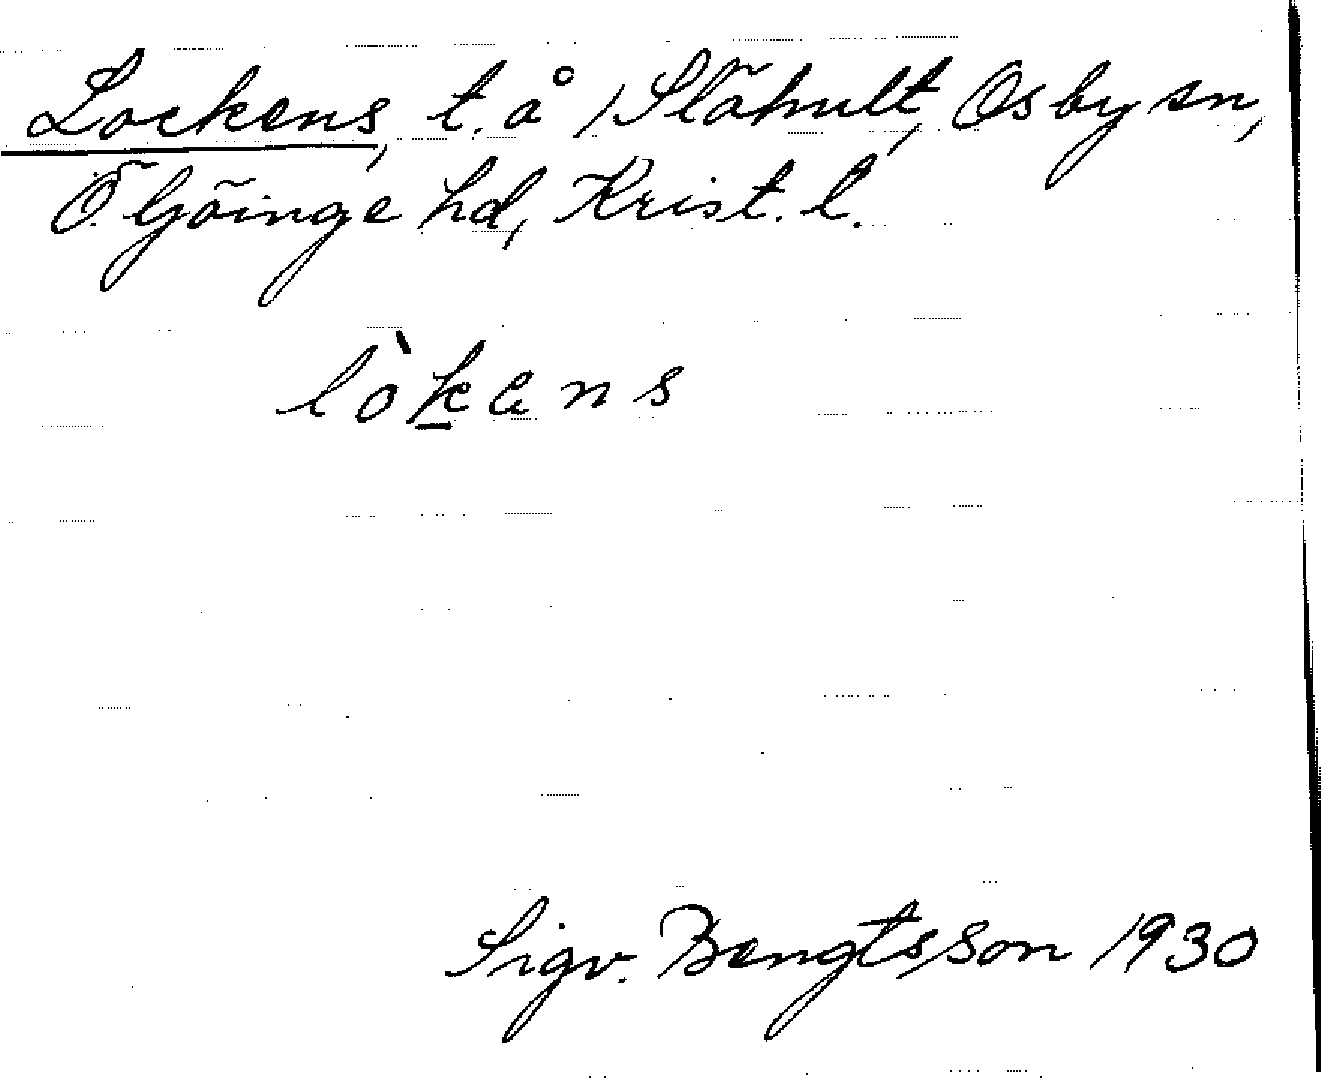 Lockens, t. å /Slähult, Osby sn,
Ö. Göinge hd, Krist. l.
lòkens
Sigv. Bengtsson 1930